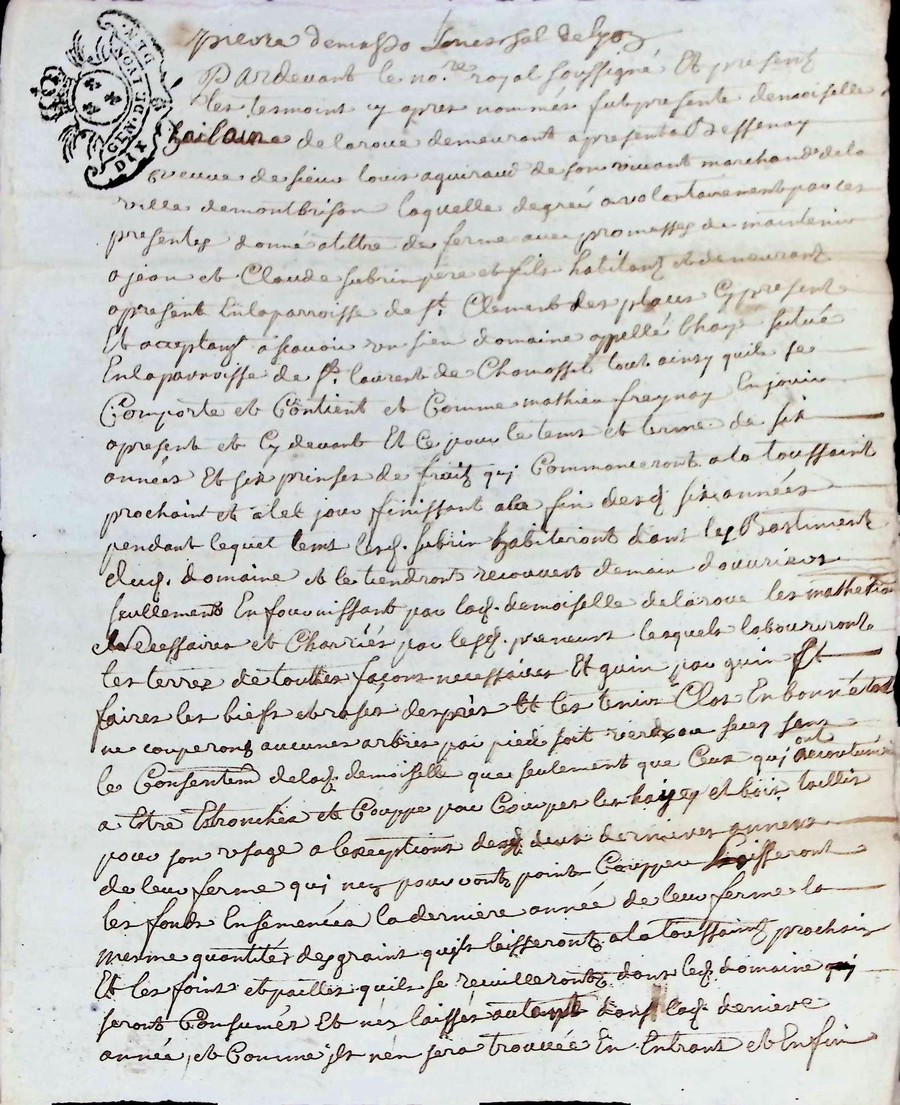 GEN. DE LYON
DIX DEN
pierre demasso senechal de Lyon
PARdevant le no.re royal soussigné Et presents
les tesmoint cy apres nommés fut presente demoiselle
de laroue demeurant apresent a Bessenay
veuve de sieur louis aguiraud de son vivant marchand de la
ville demontbrison laquelle de gréé a volontairement par ces
presentes donné atiltre de ferme avec promesses de maintenir
a jean et Claude subrin pere et fils habitant et demeurant
apresent Enlaparroisse de st. Clement des places Cy present
Et acceptant à scavoir un sien domaine appellé Chays située
Enlaparroisse de st. laurent de Chamosset tout ainsy quil se
Comporte et Contient et Comme mathieu freynay En jouit
apresent et Cy devant Et Ce pour le tems et terme de six
années Et six prinses de fruits qui Commanceront a la toussaint
prochaint et a tel jour finissant a la fin desd. six années
pendant lequel tems lesd. subrin habiteront dans les Bastiment
dud. domaine et le tiendront recouvert demain douvriers
seullement En fournissant par lad. demoiselle de la roue les
necessaires et Charriés par lesd. preneurs lesquels labouriront
les terres de touttes façons necessaires Et quin par quin Et
faires les biefs et rases des près Et les tenir Clos En bonne
ne couperont aucunes arbres par pied soit verd ou secq sans
le Consentem.t de lad. demoiselle que seulement que Ceux qui ont acoutumé
a Estre Etronchés et Couppe par Couper les hayes et bois taillis
pour son usage a lexceptions des deux dernieres années
de leur ferme qui nes pourront point Couppeu Laisseront
les fonds Ensemencés la derniere année de leur ferme la
mesme quantités desgraint quils laisseront a la toussaint prochain
Et les foins et pailles quils se recuilleront dans led. domaine qui
seront Consumés Et nes laisser autant dans lad. derniere
année, et Comme jls nen sera trouvée En Entrant et Enfin